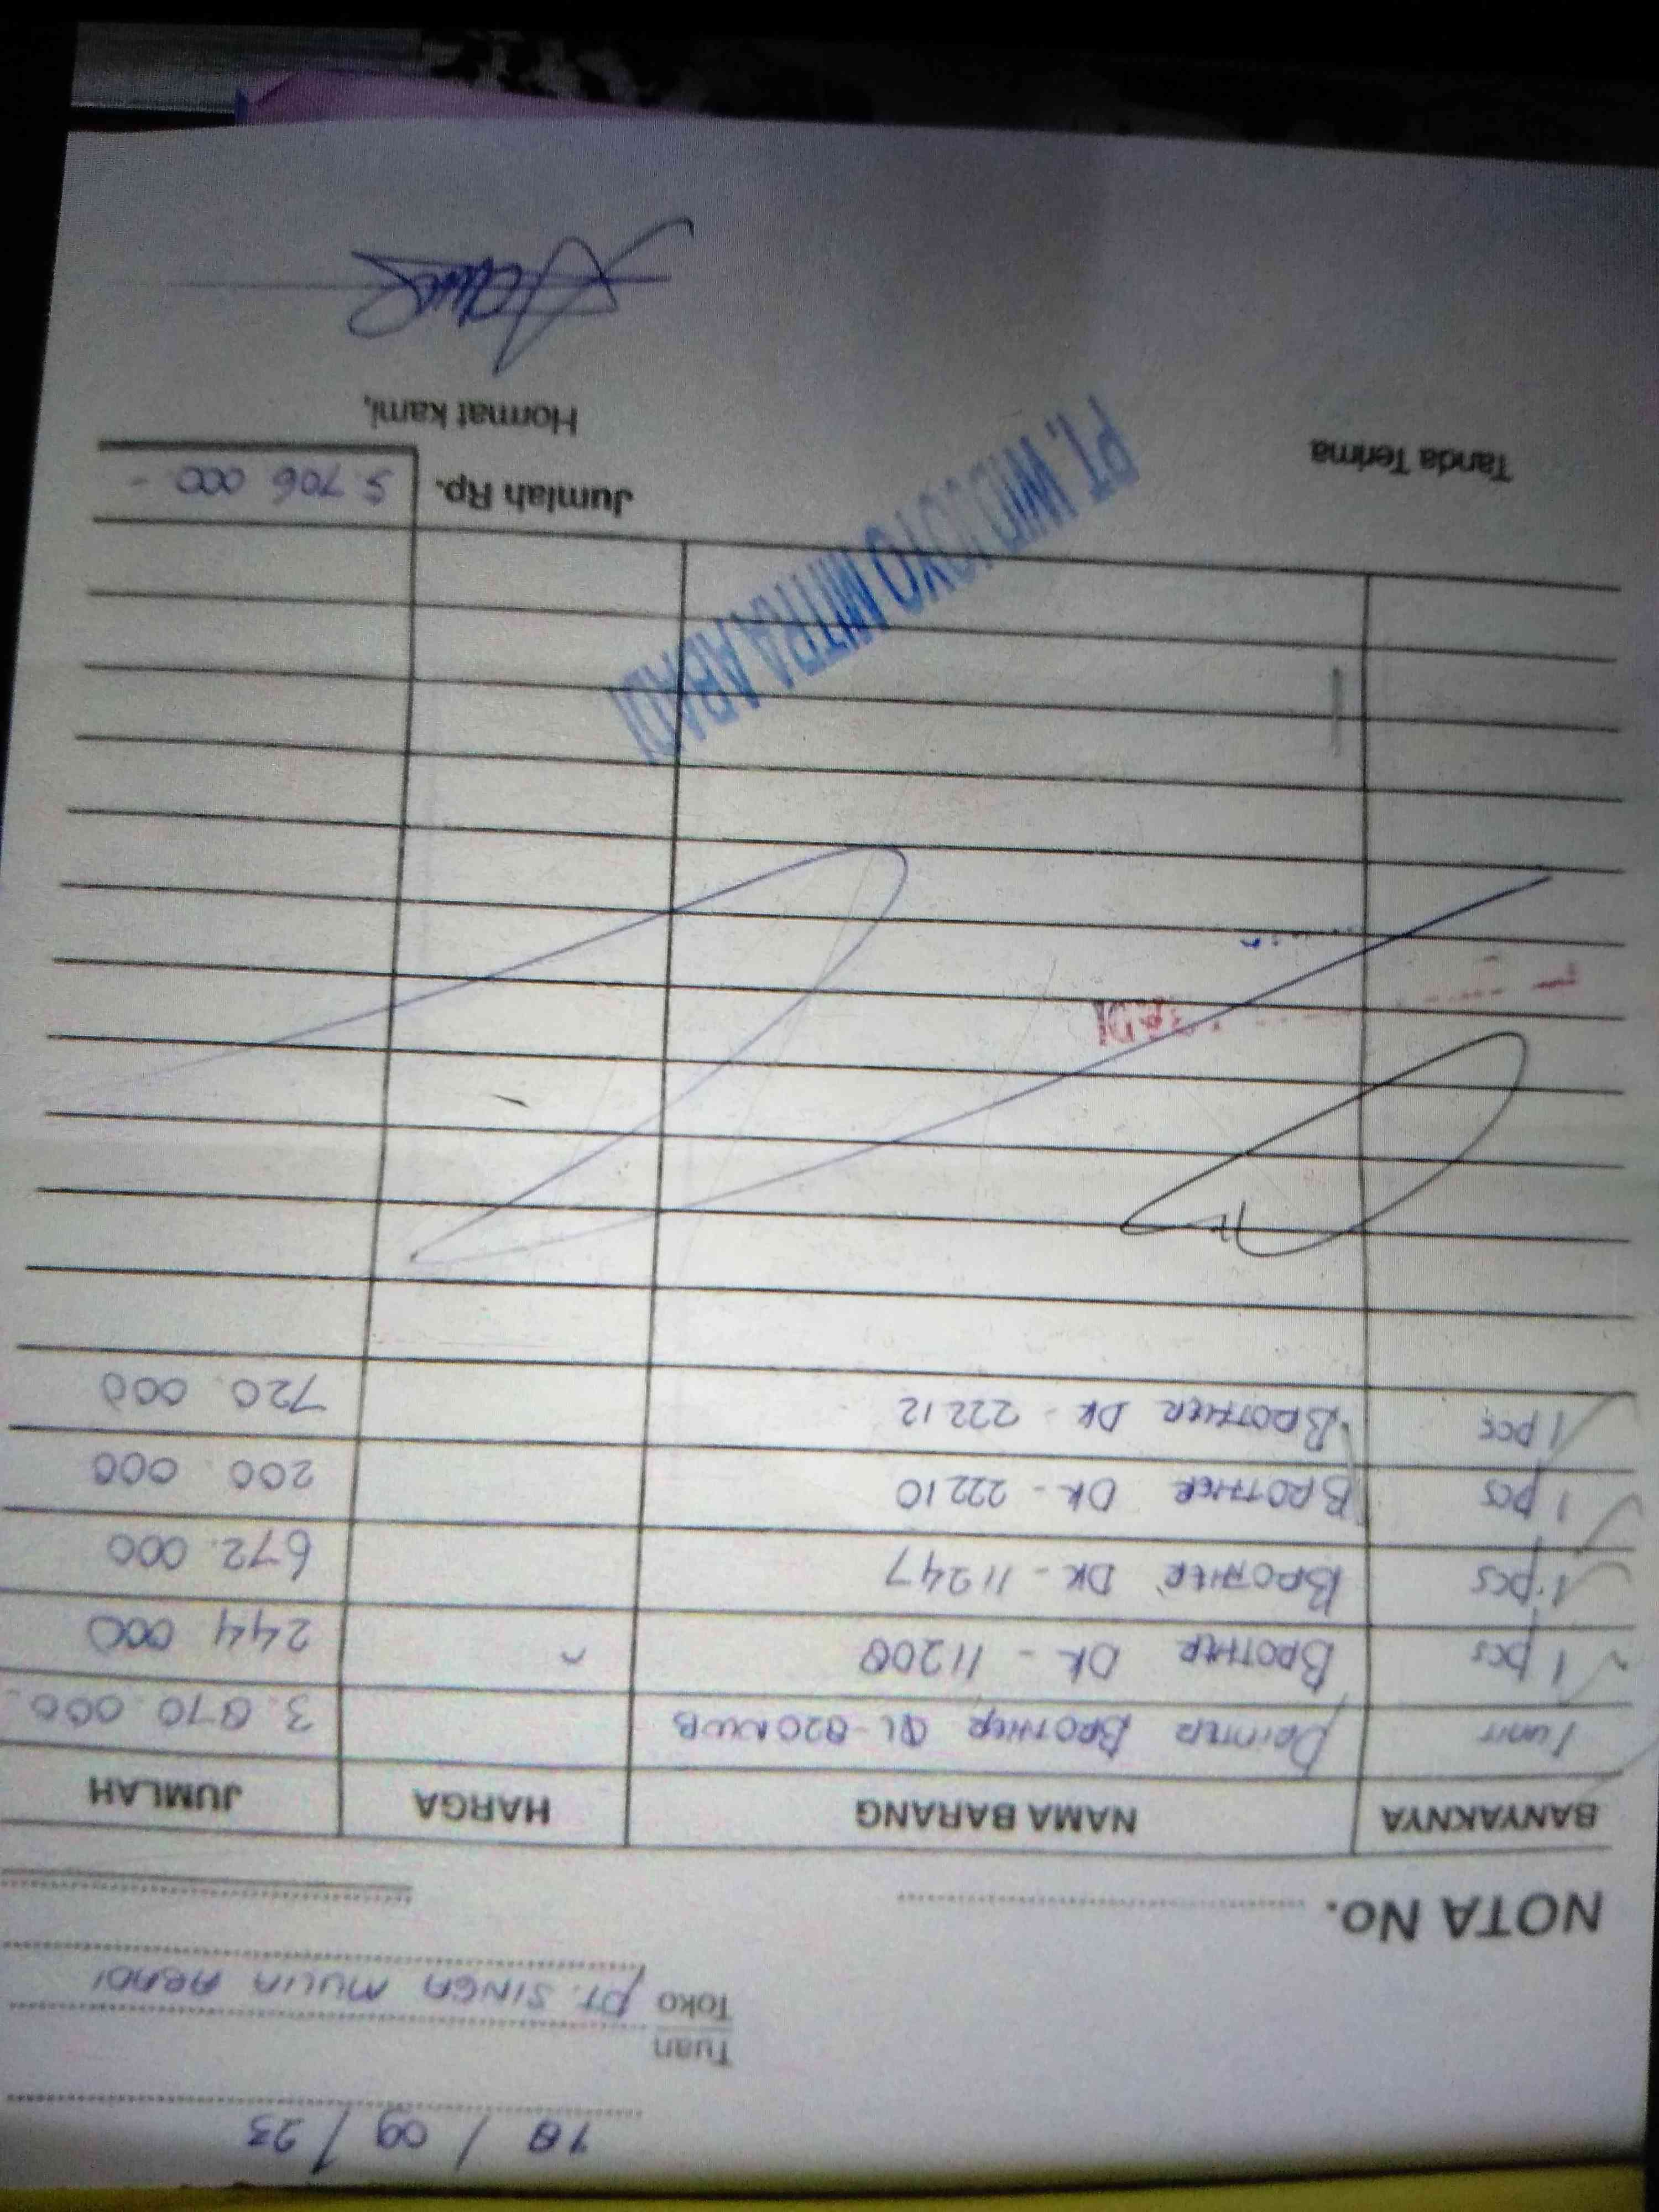 18 / 09 / 23
Tuan
Toko PT. SINGA MULIA ABADI
NOTA No.
BANYAKNYA NAMA BARANG HARGA JUMLAH
1 unit PRINTER BROTHER QL-820NWB 3.870.000
1 pcs BROTHER DK - 11208 244 000
1 pcs BROTHER DK - 11247 672.000
1 pcs BROTHER DK - 22210 200 000
1 pcs BROTHER DK - 22212 720 000
PT. MITRA ABADI
Jumlah Rp. 5.706 000 -
Tanda Terima
Hormat kami,